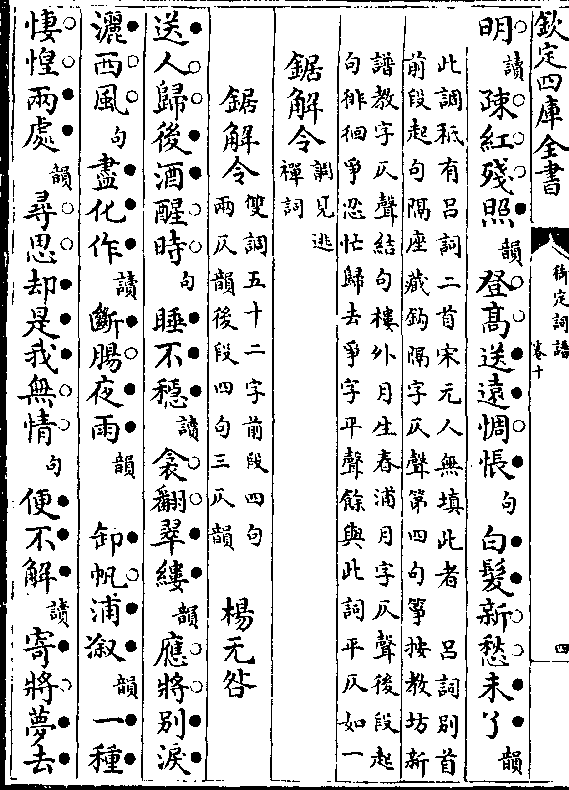 欽定四庫全書
御定詞譜
卷十
四
明讀疎紅殘照韻登髙送遠惆悵句白髮新愁未了韻
此調秪有吕詞二首宋元人無填此者　吕詞別首
前段起句隔座藏鈎隔字仄聲第四句筝按教坊新
譜教字仄聲結句樓外月生春浦月字仄聲後段起
句徘徊爭忍忙歸去爭字平聲餘與此詞平仄如一
鋸解令調見逃禪詞
鋸解令雙調五十二字前段四句兩仄韻後段四句三仄韻　楊无咎
送人歸後酒醒時句睡不穩讀衾翻翠縷韻應將別淚
灑西風句盡化作讀斷腸夜雨韻　卸帆浦溆韻一種
悽惶兩處韻尋思却是我無情句便不解讀寄將夢去